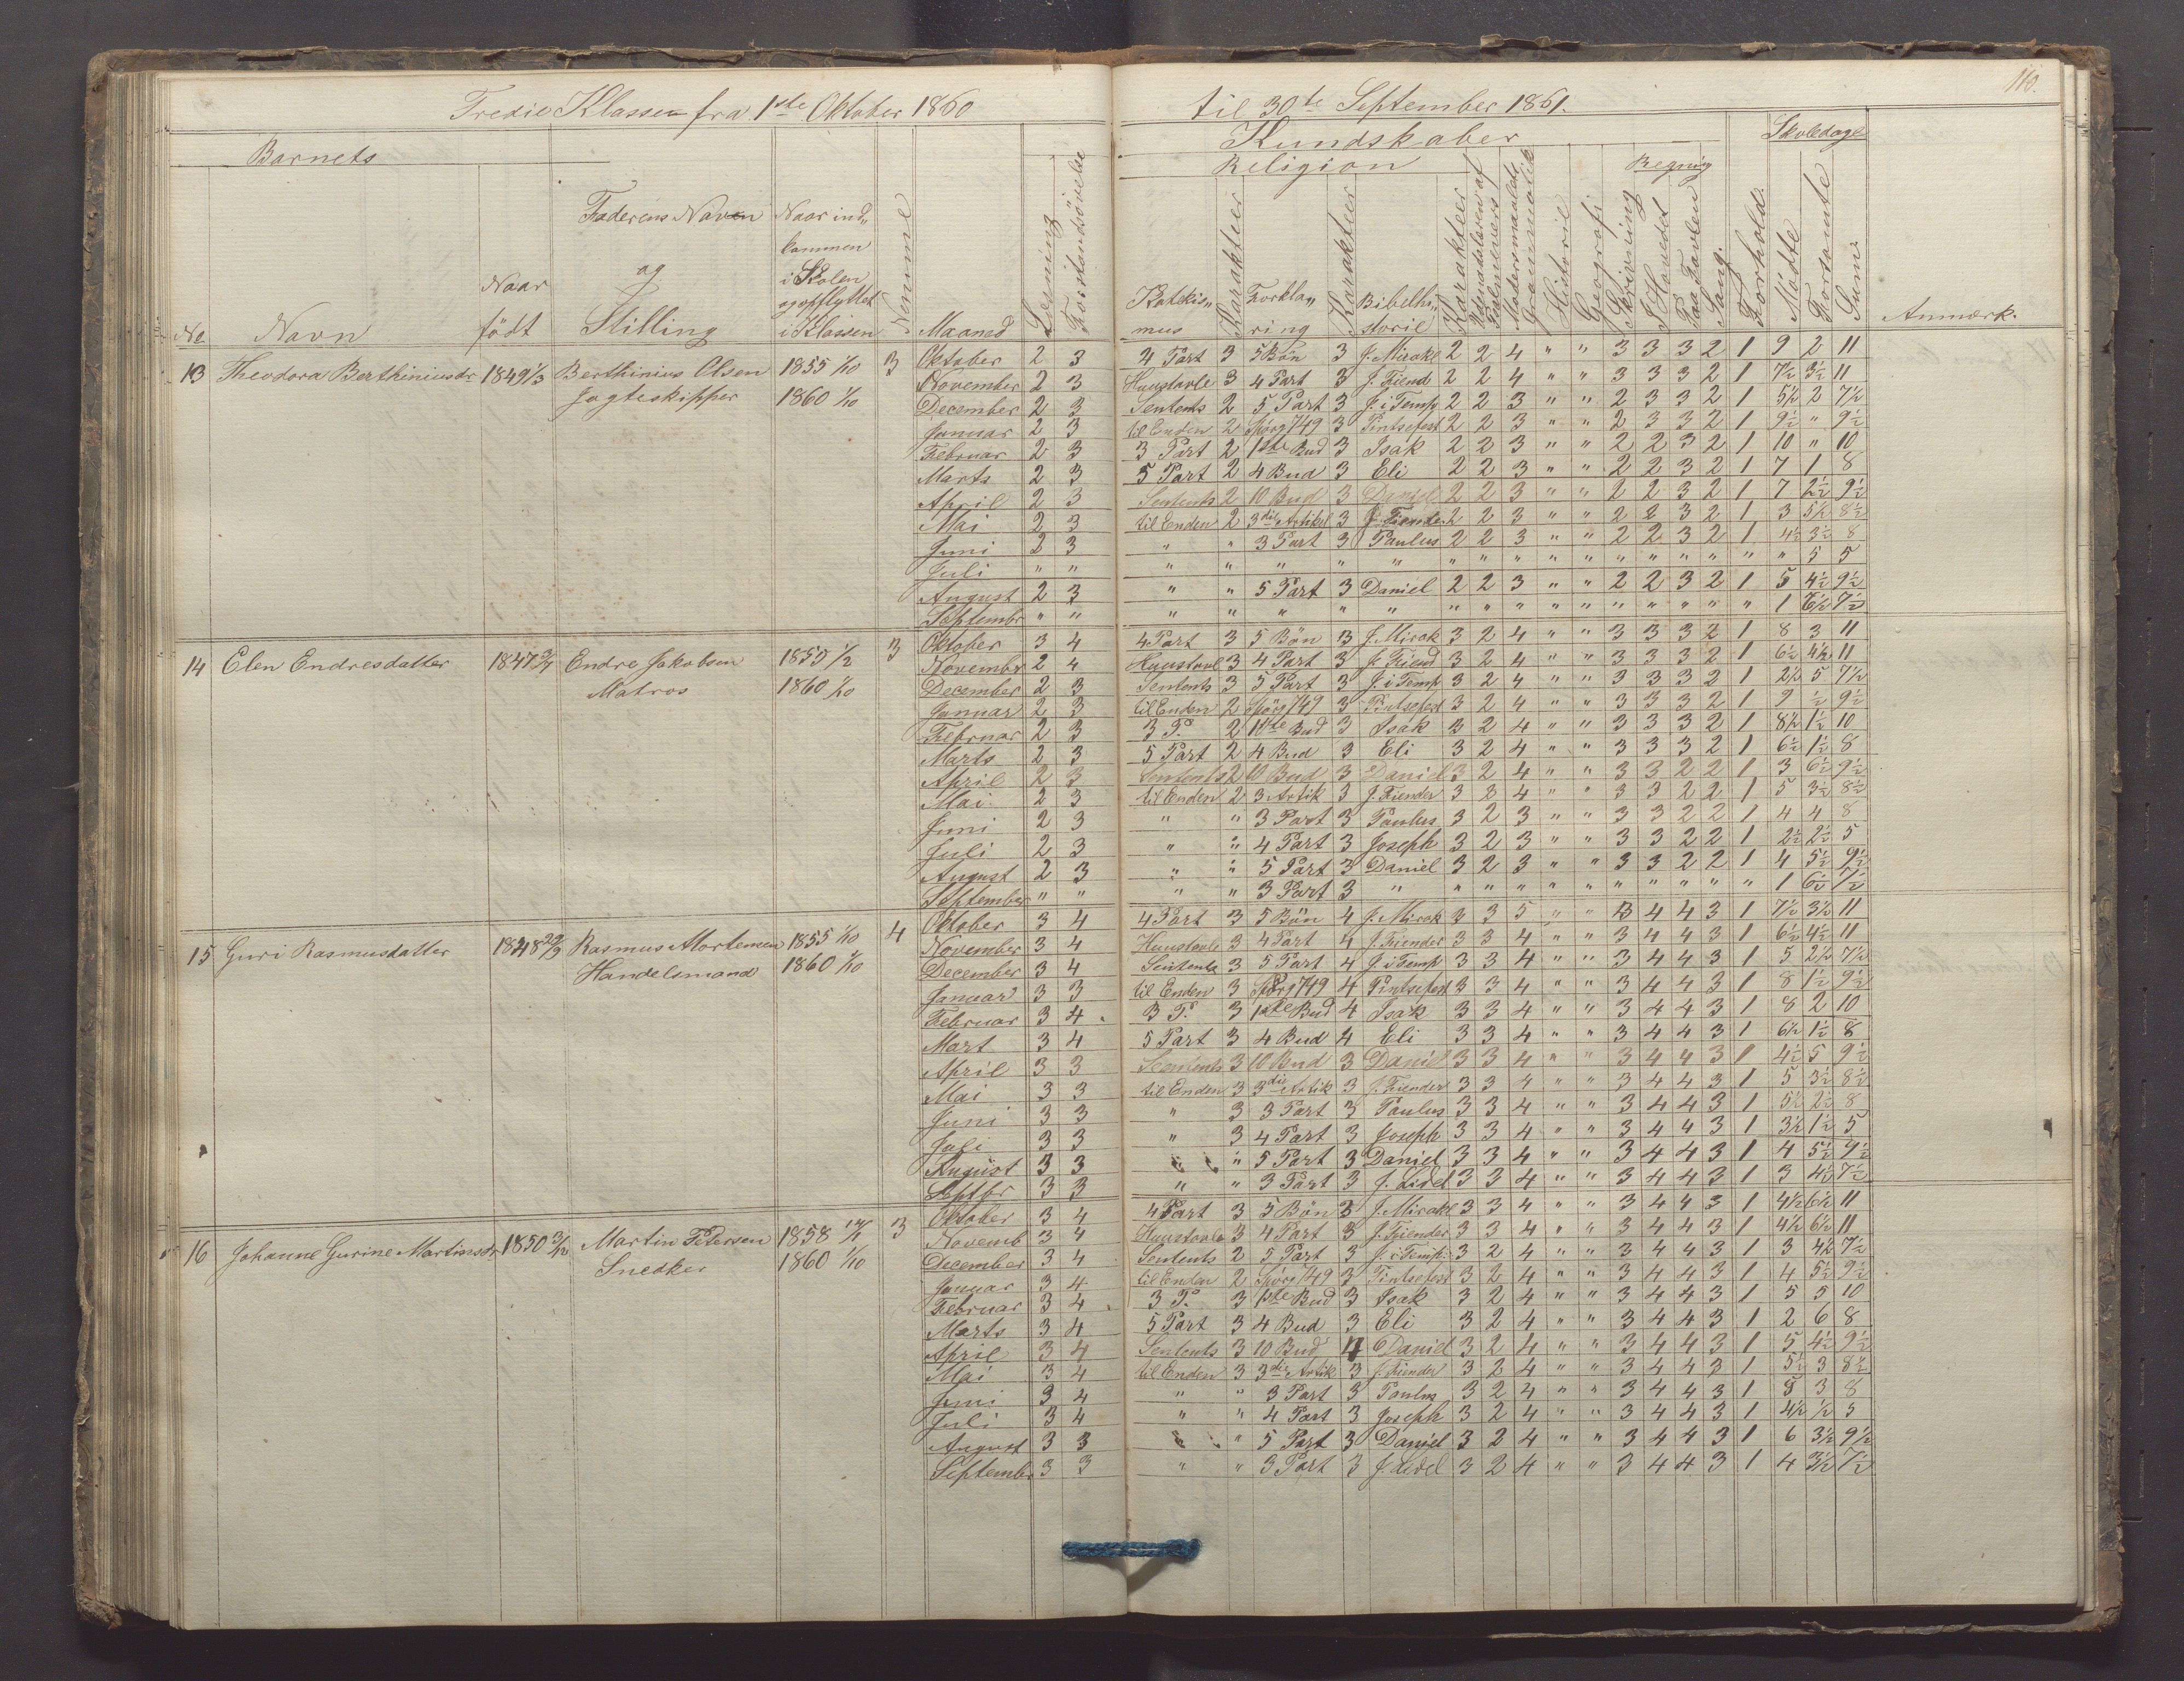 Tredie Klasse fra 1ste Oktober 1860 til 30te September 1861.
110.
Barnets
Kundskaber
Skoledage
Religion
Regning
No
Navn
Naar født
Faderens Navn og Stilling
Naar ind„ kommen i Skolen og opflyttet i Klassen
Nummer
Maaned
Læsning
Forstandsøvelse
Katekis„ mus
Karakteer
Forkla„ ring
Karakteer
Bibelhi„ storie
Karakteer
Udenadslæren af Psalmevers
Modersmaalets Grammatik
Historie
Geografi
Skrivning
I Hovedet
Paa Tavlen
Sang
Forhold.
Mødte
Forsømte
Sum
Anmærk.
13 Theodora Berthiniusdr 1849 1/3 Berthinius Olsen 1855 1/10 3
Jagteskipper 1860 1/10
Oktober 2 3 4 Part 3 5 Bön 3 J. Mirakl 2 2 4 " " 3 3 3 2 1 9 2 11
November 2 3 Huustavle 3 4 Part 3 J. Fiend 2 2 4 " " 3 3 3 2 1 7½ 3½ 11
December 2 3 Sentents 2 5 Part 3 J. i Temp 2 2 3 " " 2 3 3 2 1 5½ 2 7½
Januar 2 3 til Enden 2 Spörg 749 3 Pintsefest 2 2 3 " " 2 3 3 2 1 9½ " 9½
Februar 2 3 3 Part 2 1ste Bud 3 Isak 2 2 3 " " 2 2 3 2 1 10 " 10
Marts 2 3 5 Part 2 4 Bud 3 Eli 2 2 3 " " 2 2 3 2 1 7 1 8
April 2 3 Sentents 2 10 Bud 3 Daniel 2 2 3 " " 2 2 3 2 1 7 2½ 9½
Mai 2 3 til Enden 2 3die Artikel 3 J. Fiender 2 2 3 " " 2 2 3 2 1 3 5½ 8½
Juni 2 3 " " 3 Part 3 Paulus 2 2 3 " " 2 2 3 2 1 4½ 3½ 8
Juli " " " " " " " " " " " " " " " " " " 5 5
August 2 3 " " 5 Part 3 Daniel 2 2 3 " " 2 2 3 2 1 5 4½ 9½
Septembr " " " " " " " " " " " " " " " " " 1 6½ 7½
14 Elen Endresdatter 1847 Endre Jakobsen 1855 1/2 3
Matros 1860 1/10
Oktober 3 4 4 Part 3 5 Bön 3 J. Mirak 3 2 4 " " 3 3 3 2 1 8 3 11
November 2 4 Huustavl 3 4 Part 3 J. Fiend 3 2 4 " " 3 3 3 2 1 6½ 4½ 11
December 2 3 Sentents 3 5 Part 3 J. i Temp 3 2 4 " " 3 3 3 2 1 2½ 5 7½
Januar 2 3 til Enden 2 Spörg 749 3 Pintsefest 3 2 4 " " 3 3 3 2 1 9 ½ 9½
Februar 2 3 3 P. 2 1ste Bud 3 Isak 3 2 4 " " 3 3 3 2 1 8½ 1½ 10
Marts 2 3 5 Part 2 4 Bud 3 Eli 3 2 4 " " 3 3 3 2 1 6½ 1½ 8
April 2 3 Sentents 2 10 Bud 3 Daniel 3 2 4 " " 3 3 2 2 1 3 6½ 9½
Mai 2 3 til Enden 2 3 Artik 3 J. Fiender 3 2 4 " " 3 3 2 2 1 5 3½ 8½
Juni 2 3 " " 3 Part 3 Paulus 3 2 3 " " 3 3 2 2 1 4 4 8
Juli 2 3 " " 4 Part 3 Joseph 3 2 3 " " 3 3 2 2 1 2½ 2½ 5
August 2 3 " " 5 Part 3 Daniel 3 2 3 " " 3 3 2 2 1 4 5½ 9½
September " " " " 3 Part 3 " " " " " " " " " " " 1 6½ 7½
15 Guri Rasmusdatter 1848 29/3 Rasmus Mortensen 1855 1/10 4
Handelsmand 1860 1/10
Oktober 3 4 4 Part 3 5 Bön 4 J. Mirak 3 3 5 " " 3 4 4 3 1 7½ 3½ 11
November 3 4 Huustavle 3 4 Part 4 J. Fiender 3 3 4 " " 3 4 4 3 1 6½ 4½ 11
December 3 4 Sentents 3 5 Part 4 J. i Temp 3 3 4 " " 3 4 4 3 1 5 2½ 7½
Januar 3 3 til Enden 3 Spörg 749 4 Pintsefest 3 3 4 " " 3 4 4 3 1 8 1½ 9½
Februar 3 4 3 P. 3 1ste Bud 4 Isak 3 3 4 " " 3 4 4 3 1 8 2 10
Mart 3 4 5 Part 3 4 Bud 4 Eli 3 3 4 " " 3 4 4 3 1 6½ 1½ 8
April 3 3 Sentents 3 10 Bud 3 Daniel 3 3 4 " " 3 4 4 3 1 4½ 5 9½
Mai 3 3 til Enden 3 3die Artik 3 J. Fiender 3 3 4 " " 3 4 4 3 1 5 3½ 8½
Juni 3 3 " 3 3 Part 3 Paulus 3 3 4 " " 3 4 4 3 1 5½ 2½ 8
Juli 3 3 " 3 4 Part 3 Joseph 3 3 4 " " 3 4 4 3 1 3½ 1½ 5
August 3 3 " " 5 Part 3 Daniel 3 3 4 " " 3 4 4 3 1 4 5½ 9½
Septbr 3 3 " " 3 Part 3 J. Lidel 3 3 4 " " 3 4 4 3 1 3 4½ 7½
16 Johanne Gurine Martinsdr 1850 3/12 Martin Petersen 1858 3
Snedker 1860 1/10
Oktober 3 4 4 Part 3 5 Bön 3 J. Mirakl 3 3 4 " " 3 4 4 3 1 4½ 6½ 11
Novemb 3 4 Huustavle 3 4 Part 3 J. Fiender 3 3 4 " " 3 4 4 3 1 4½ 6½ 11
December 3 4 Sentents 2 5 Part 3 J. i Temp. 3 2 4 " " 3 4 4 3 1 3 4½ 7½
Januar 3 4 til Enden 2 Spörg 749 3 Pintsefest 3 2 4 " " 3 4 4 3 1 4 5½ 9½
Februar 3 4 3 P. 3 1ste Bud 3 Isak 3 2 4 " " 3 4 4 3 1 5 5 10
Marts 3 4 5 Part 3 4 Bud 3 Eli 3 2 4 " " 3 4 4 3 1 2 6 8
April 3 4 Sentents 3 10 Bud 4 Daniel 3 2 4 " " 3 4 4 3 1 5 4½ 9½
Mai 3 4 til Enden 3 3die Artik 3 J. Fiender 3 2 4 " " 3 4 4 3 1 5½ 3 8½
Juni 3 4 " " 3 Part 3 Paulus 3 2 4 " " 3 4 4 3 1 5 3 8
Juli 3 4 " " 4 Part 3 Joseph 3 2 4 " " 3 4 4 3 1 4½ ½ 5
August 3 3 " " 5 Part 3 Daniel 3 2 4 " " 3 4 4 3 1 6 3½ 9½
September 3 3 " " 3 Part 3 J. Lidel 3 2 4 " " 3 4 4 3 1 4 3½ 7½